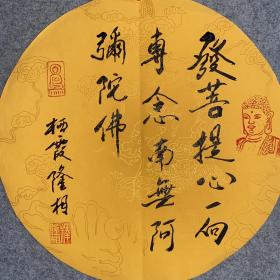 發菩提心一向
專念南無阿
彌陀佛
栖霞隆相